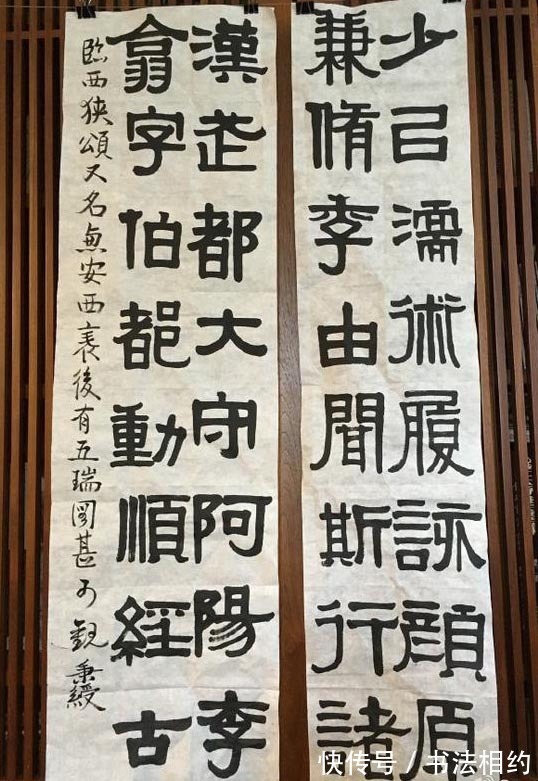 少㠯濡術履詠顏原
兼脩季由聞斯行諸
漢武都大守阿陽李
翕字伯都動順經古
臨西狹頌又名惠安西表後有五瑞圖甚可觀 秉綬
快传号/书法相约